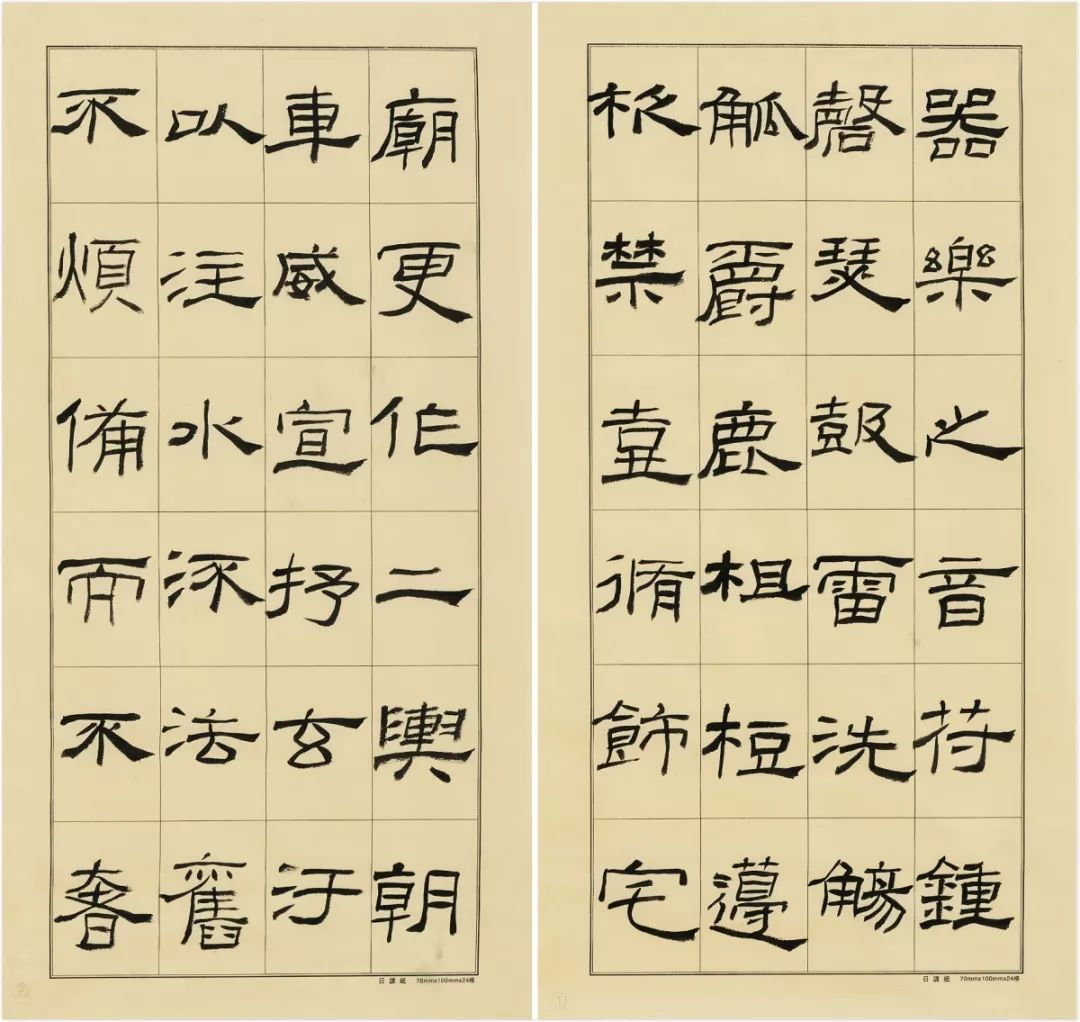 器樂之音符鍾
磬瑟鼓雷洗觴
觚爵鹿柤梪籩
柉禁壺脩飾宅
日課紙 70mmx100mmx24格
⑦
廟更作二輿朝
車威宣抒玄汙
以注水流法舊
不煩備而不奢
日課紙 70mmx100mmx24格
⑧